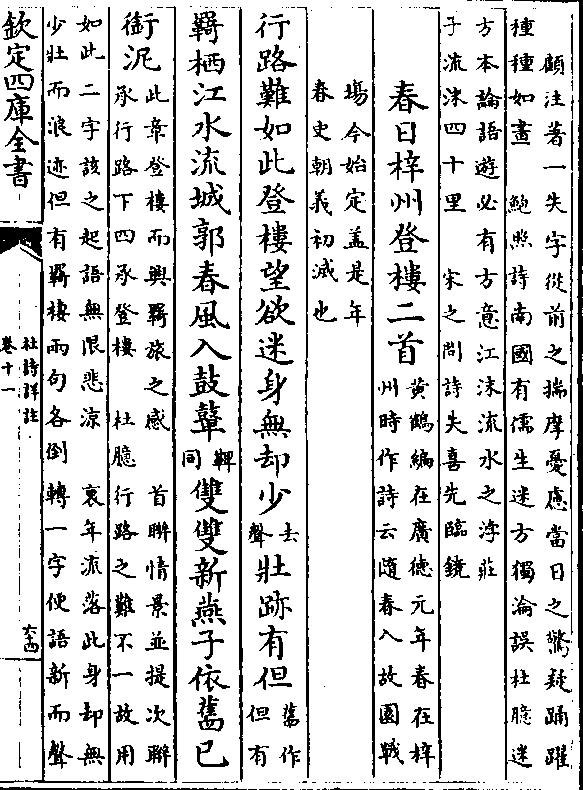 顧注著一失字從前之揣摩憂慮當日之驚疑踊躍
種種如畫　鮑照詩南國有儒生迷方獨淪誤杜臆迷
方本論語遊必有方意江沫流水之浮莊
子流沫四十里　宋之問詩失喜先臨鏡
春日梓州登樓二首
黃鶴編在廣德元年春在梓
州時作詩云隨春入故園戰
塲今始定盖是年
春史朝義初滅也
行路難如此登樓望欲迷身無却少去聲壯跡有但舊作但有
羇栖江水流城郭春風入鼓鼙鞞同雙雙新燕子依舊已
銜泥
此章登樓而興羇旅之感　首聯情景並提次聯
承行路下四承登樓　杜臆行路之難不一故用
如此二字該之起語無限悲涼　衰年流落此身却無
少壯而浪迹但有羇棲兩句各倒轉一字便語新而聲
欽定四庫全書
杜詩詳註
卷十一